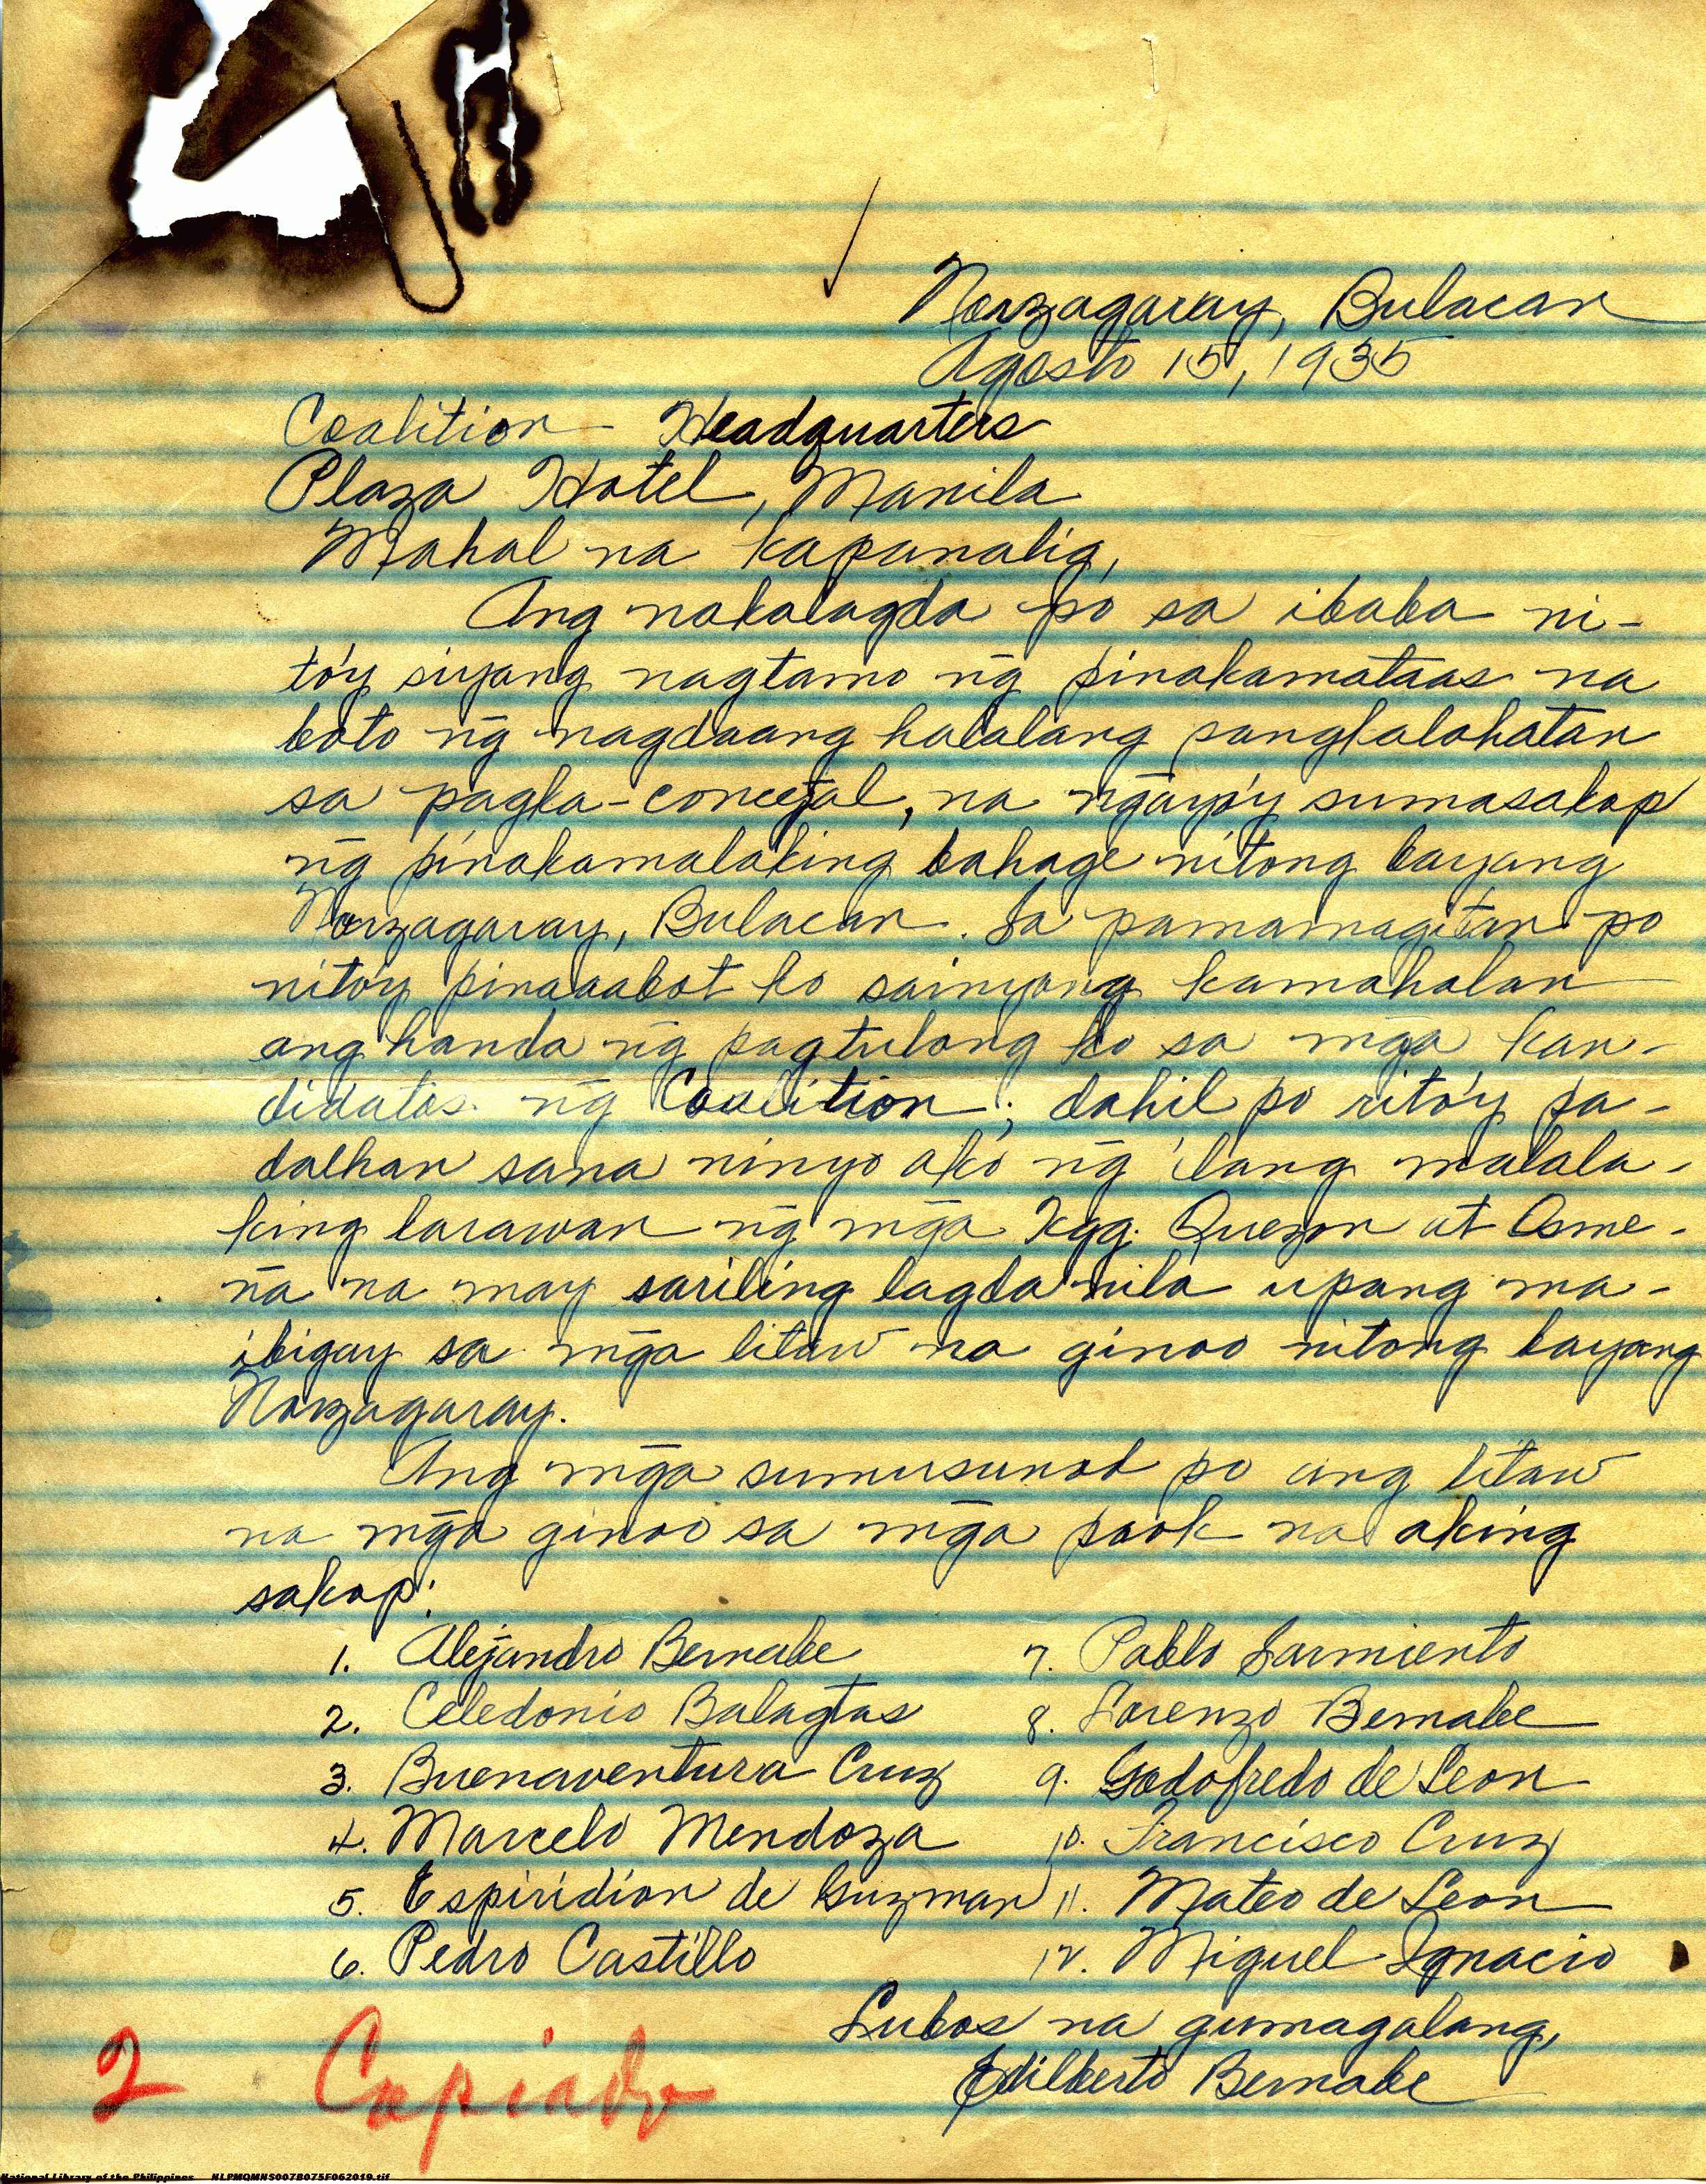 Norzagaray, Bulacan
Agosto 15, 1935
Coalition Headquarters
Plaza Hotel, Manila
Mahal na kapanalig,
Ang nakalagda po sa ibaba ni-
to'y siyang nagtamo ng̃ pinakamataas na
boto ng̃ nagdaang halalang pangkalahatan
sa pagka-concejal, na ng̃ayo'y sumasakop
ng̃ pinakamalaking bahagi nitong bayang
Norzagaray, Bulacan. Sa pamamagitan po
nito'y pinaaabot ko sainyong kamahalan
ang handa ng̃ pagtulong ko sa mg̃a kan-
didatos ng̃ Coalition; dahil po rito'y pa-
dalhan sana ninyo ako ng̃ ilang malala-
king larawan ng̃ mg̃a Kgg. Quezon at Osme-
ña na may sariling lagda nila upang ma-
ibigay sa mg̃a litaw na ginoo nitong bayang
Norzagaray.
Ang mg̃a sumusunod po ang litaw
na mg̃a ginoo sa mg̃a pook na aking
sakop:
1. Alejandro Bernabe
2. Celedonio Balagtas
3. Buenaventura Cruz
4. Marcelo Mendoza
5. Espiridion de Guzman
6. Pedro Castillo
7. Pablo Sarmiento
8. Lorenzo Bernabe
9. Godofredo de Leon
10. Francisco Cruz
11. Mateo de Leon
12. Miguel Ignacio
Lubos na gumagalang,
Edilberto Bernabe
2 Copiado
National Library of the Philippines NLPMQMNS007B075F062019.tif